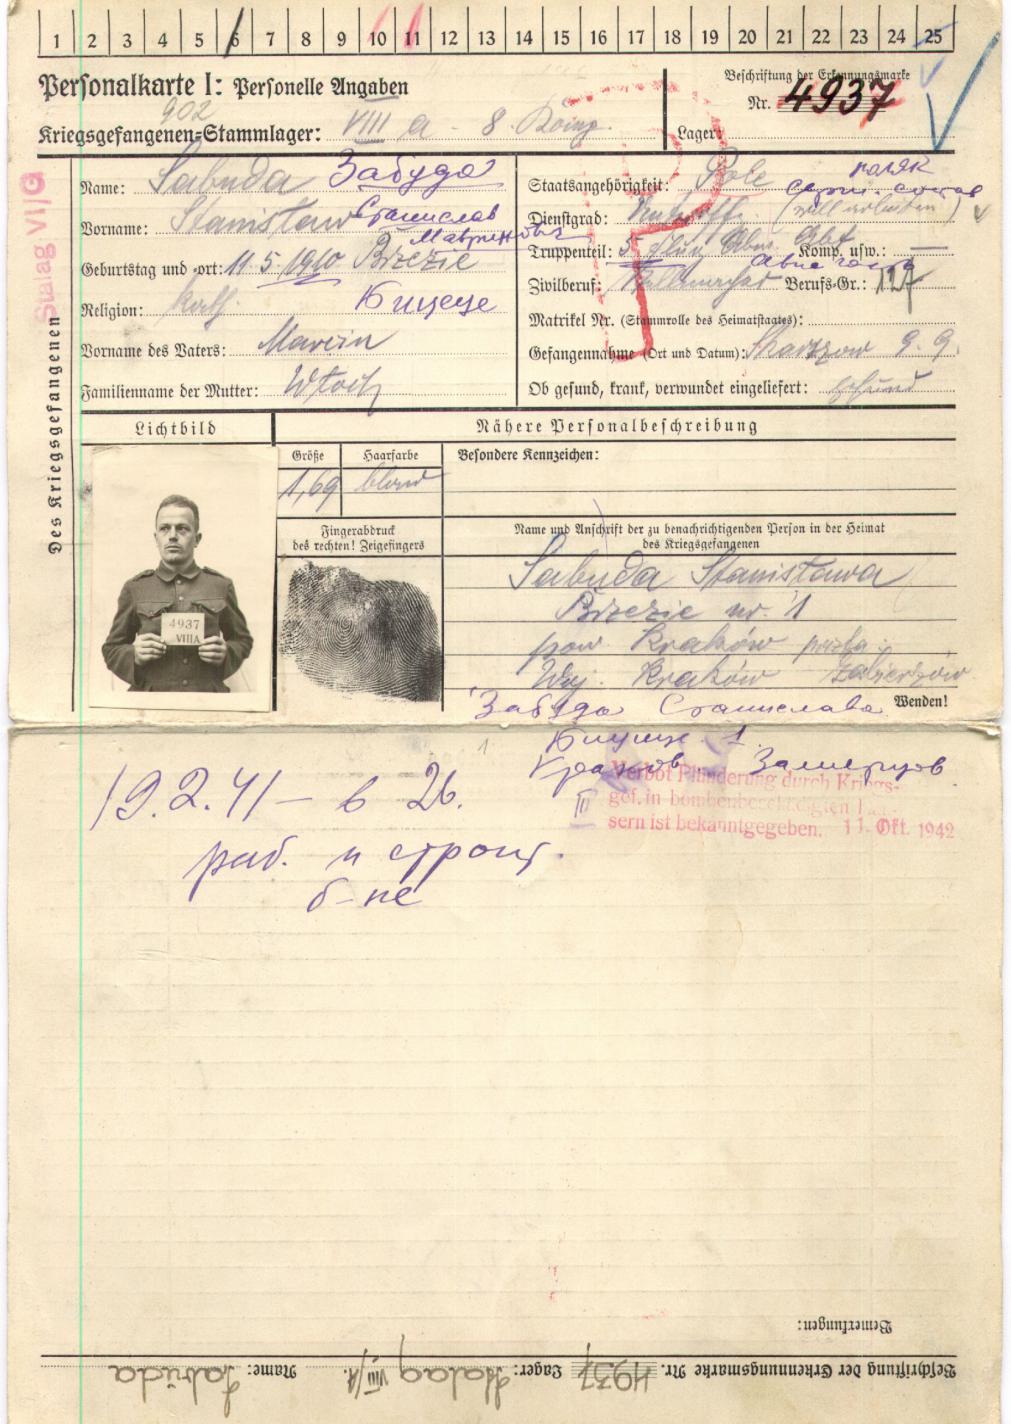 1 2 3 4 5 6 7 8 9 10 11 12 13 14 15 16 17 18 19 20 21 22 23 24 25
Personalkarte I: Personelle Angaben
Beschriftung der Erkennungsmarke
902
Nr. 4937
Kriegsgefangenen-Stammlager: VIII a - 8.
Lager:
Stalag VI/G
Des Kriegsgefangenen
Name: Sabuda Забуда
Vorname: Stanisław Станислав
Geburtstag und -ort: 11.5.1910 Brzezie
Religion: kath.
Vorname des Vaters: Marcin
Familienname der Mutter: Włoch
Staatsangehörigkeit: Pole поляк
Dienstgrad: (will arbeiten)
Truppenteil: 5. Komp. usw.: —
Zivilberuf: Berufs-Gr.: 127
Matrikel Nr. (Stammrolle des Heimatstaates):
Gefangennahme (Ort und Datum): 9.9.
Ob gesund, krank, verwundet eingeliefert: gesund
Lichtbild
Nähere Personalbeschreibung
Größe Haarfarbe Besondere Kennzeichen:
1,69 blond
Fingerabdruck
des rechten! Zeigefingers
Name und Anschrift der zu benachrichtigenden Person in der Heimat
des Kriegsgefangenen
4937
VIIIA
Sabuda Stanisława
Brzezie nr. 1
pow. Kraków poczta
Woj. Kraków Zabierzów
Забуда Станислава
Wenden!
1
Краков
19.2.41 – в 26.
раб. и строит.
б-не
III
Verbot Plünderung durch Kriegs-
gef. in bombenbeschädigten Häu-
sern ist bekanntgegeben. 11. Okt. 1942
Bemerkungen:
Beschriftung der Erkennungsmarke Nr. 4937 Lager: Stalag VIII/A Name: Sabuda